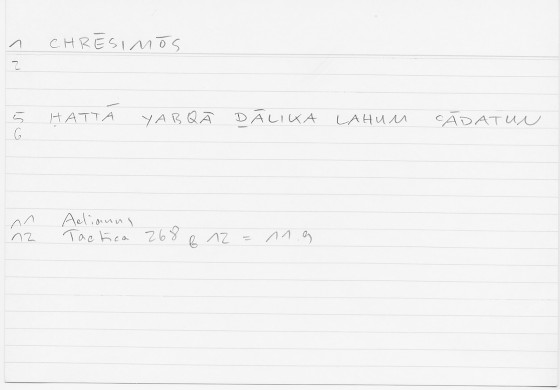 1 CHRĒSIMŌS
2
5 ḤATTĀ YABQĀ ḎĀLIKA LAHUM ʿĀDATUN
6
11 Aelianus
12 Tactica 268 B 12 = 11 9